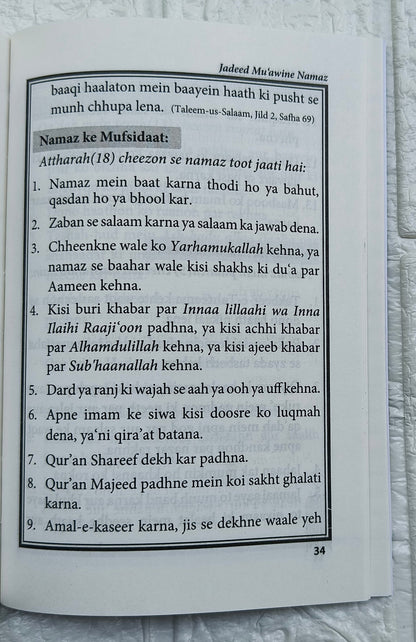 Jadeed Mu‘awine Namaz
baaqi haalaton mein baayein haath ki pusht se
munh chhupa lena. (Taleem-us-Salaam, Jild 2, Safha 69)
Namaz ke Mufsidaat:
Attharah(18) cheezon se namaz toot jaati hai:
1. Namaz mein baat karna thodi ho ya bahut,
qasdan ho ya bhool kar.
2. Zaban se salaam karna ya salaam ka jawab dena.
3. Chheenkne wale ko Yarhamukallah kehna, ya
namaz se baahar wale kisi shakhs ki du‘a par
Aameen kehna.
4. Kisi buri khabar par Innaa lillaahi wa Inna
Ilaihi Raaji‘oon padhna, ya kisi achhi khabar
par Alhamdulillah kehna, ya kisi ajeeb khabar
par Sub’haanallah kehna.
5. Dard ya ranj ki wajah se aah ya ooh ya uff kehna.
6. Apne imam ke siwa kisi doosre ko luqmah
dena, ya‘ni qira’at batana.
7. Qur’an Shareef dekh kar padhna.
8. Qur’an Majeed padhne mein koi sakht ghalati
karna.
9. Amal-e-kaseer karna, jis se dekhne waale yeh
34